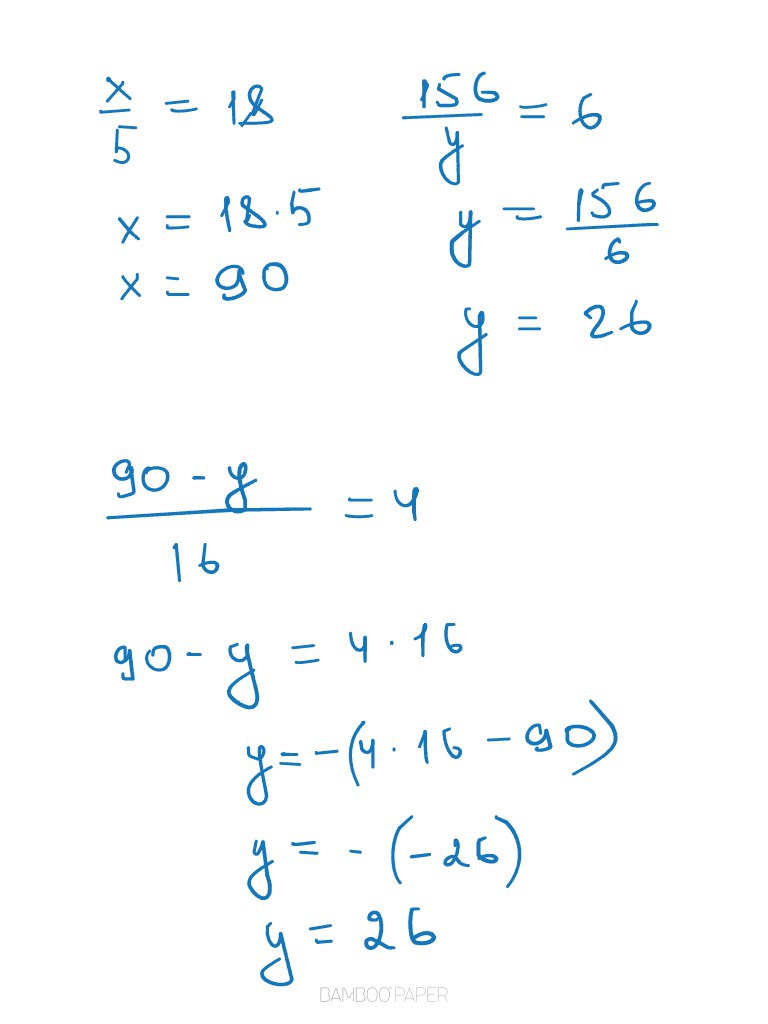 x/5 = 18
x = 18·5
x = 90
156/y = 6
y = 156/6
y = 26
90 - y/16 = 4
90 - y = 4 · 16
y = -(4 · 16 - 90)
y = - (-26)
y = 26
BAMBOO PAPER